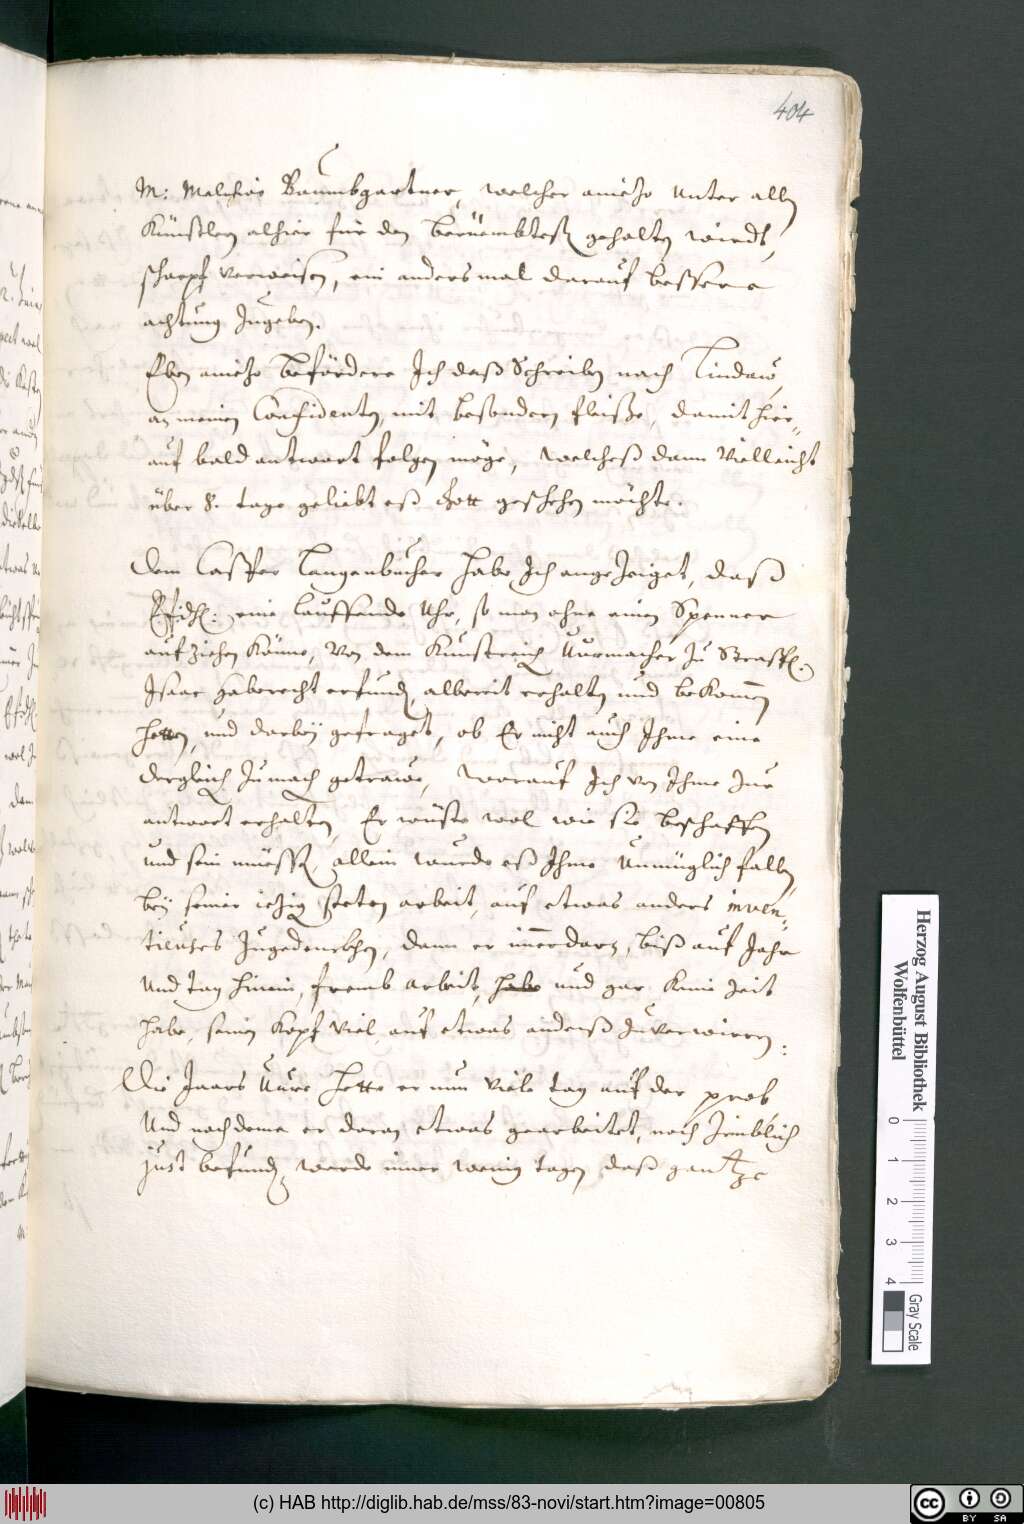 404
M: Melchior Baumbgartner, welcher aniezo unter allen
Künstlern alhier für den berüembtesten gehalten würdt,
scharpf verweisen, ein anders mal darauf bessere
achtung Zugeben.
Eben aniezo befördere Ich daß Schreiben nach Lindaw,
an meinen Confidenten, mit besonderen fleiße, damit hier-
auf bald antwort folgen möge, welcheß dann Villeicht
über 8. tage geliebt eß Gott geschehen möchte.
Dem Casper Langenbucher habe Ich angeZeiget, daß
E. fürstl: eine lauffende Uhr, so man ohne einen Spenner
aufziehen könne, von dem Kunstreich Uurmacher Zu Straßb.
Isaac Habrecht erfunden, albereit erhalten und bekommen
hetten, und darbey gefraget, ob Er nicht auch Ihme eine
dergleich Zumach getrawe, Worauf Ich von Ihme Zur
antwort erhalten, Er wüste wol wie sie beschaffen
und sein müessen, allein wurde eß Ihme Unmüglich fallen,
bey seiner iezig steten arbeit, auf etwas anders inven-
tieuses Zugedencken, dann er immerdarz, biß auf Jahr
Und tag hinein, fremb arbeit, habe und gar keine Zeit
habe, seinen kopf viel auf etwas anderß Zuverwirren:
Die Jaars Uure hette er nun viele tag auf der prob
Und nachdeme er daran etwas gearbeitet, noch Zimblich
just befunden, werde inner wenig tagen daß gantze
Herzog August Bibliothek
Wolfenbüttel
0 1 2 3 4
Gray Scale
(c) HAB http://diglib.hab.de/mss/83-novi/start.htm?image=00805
cc BY SA